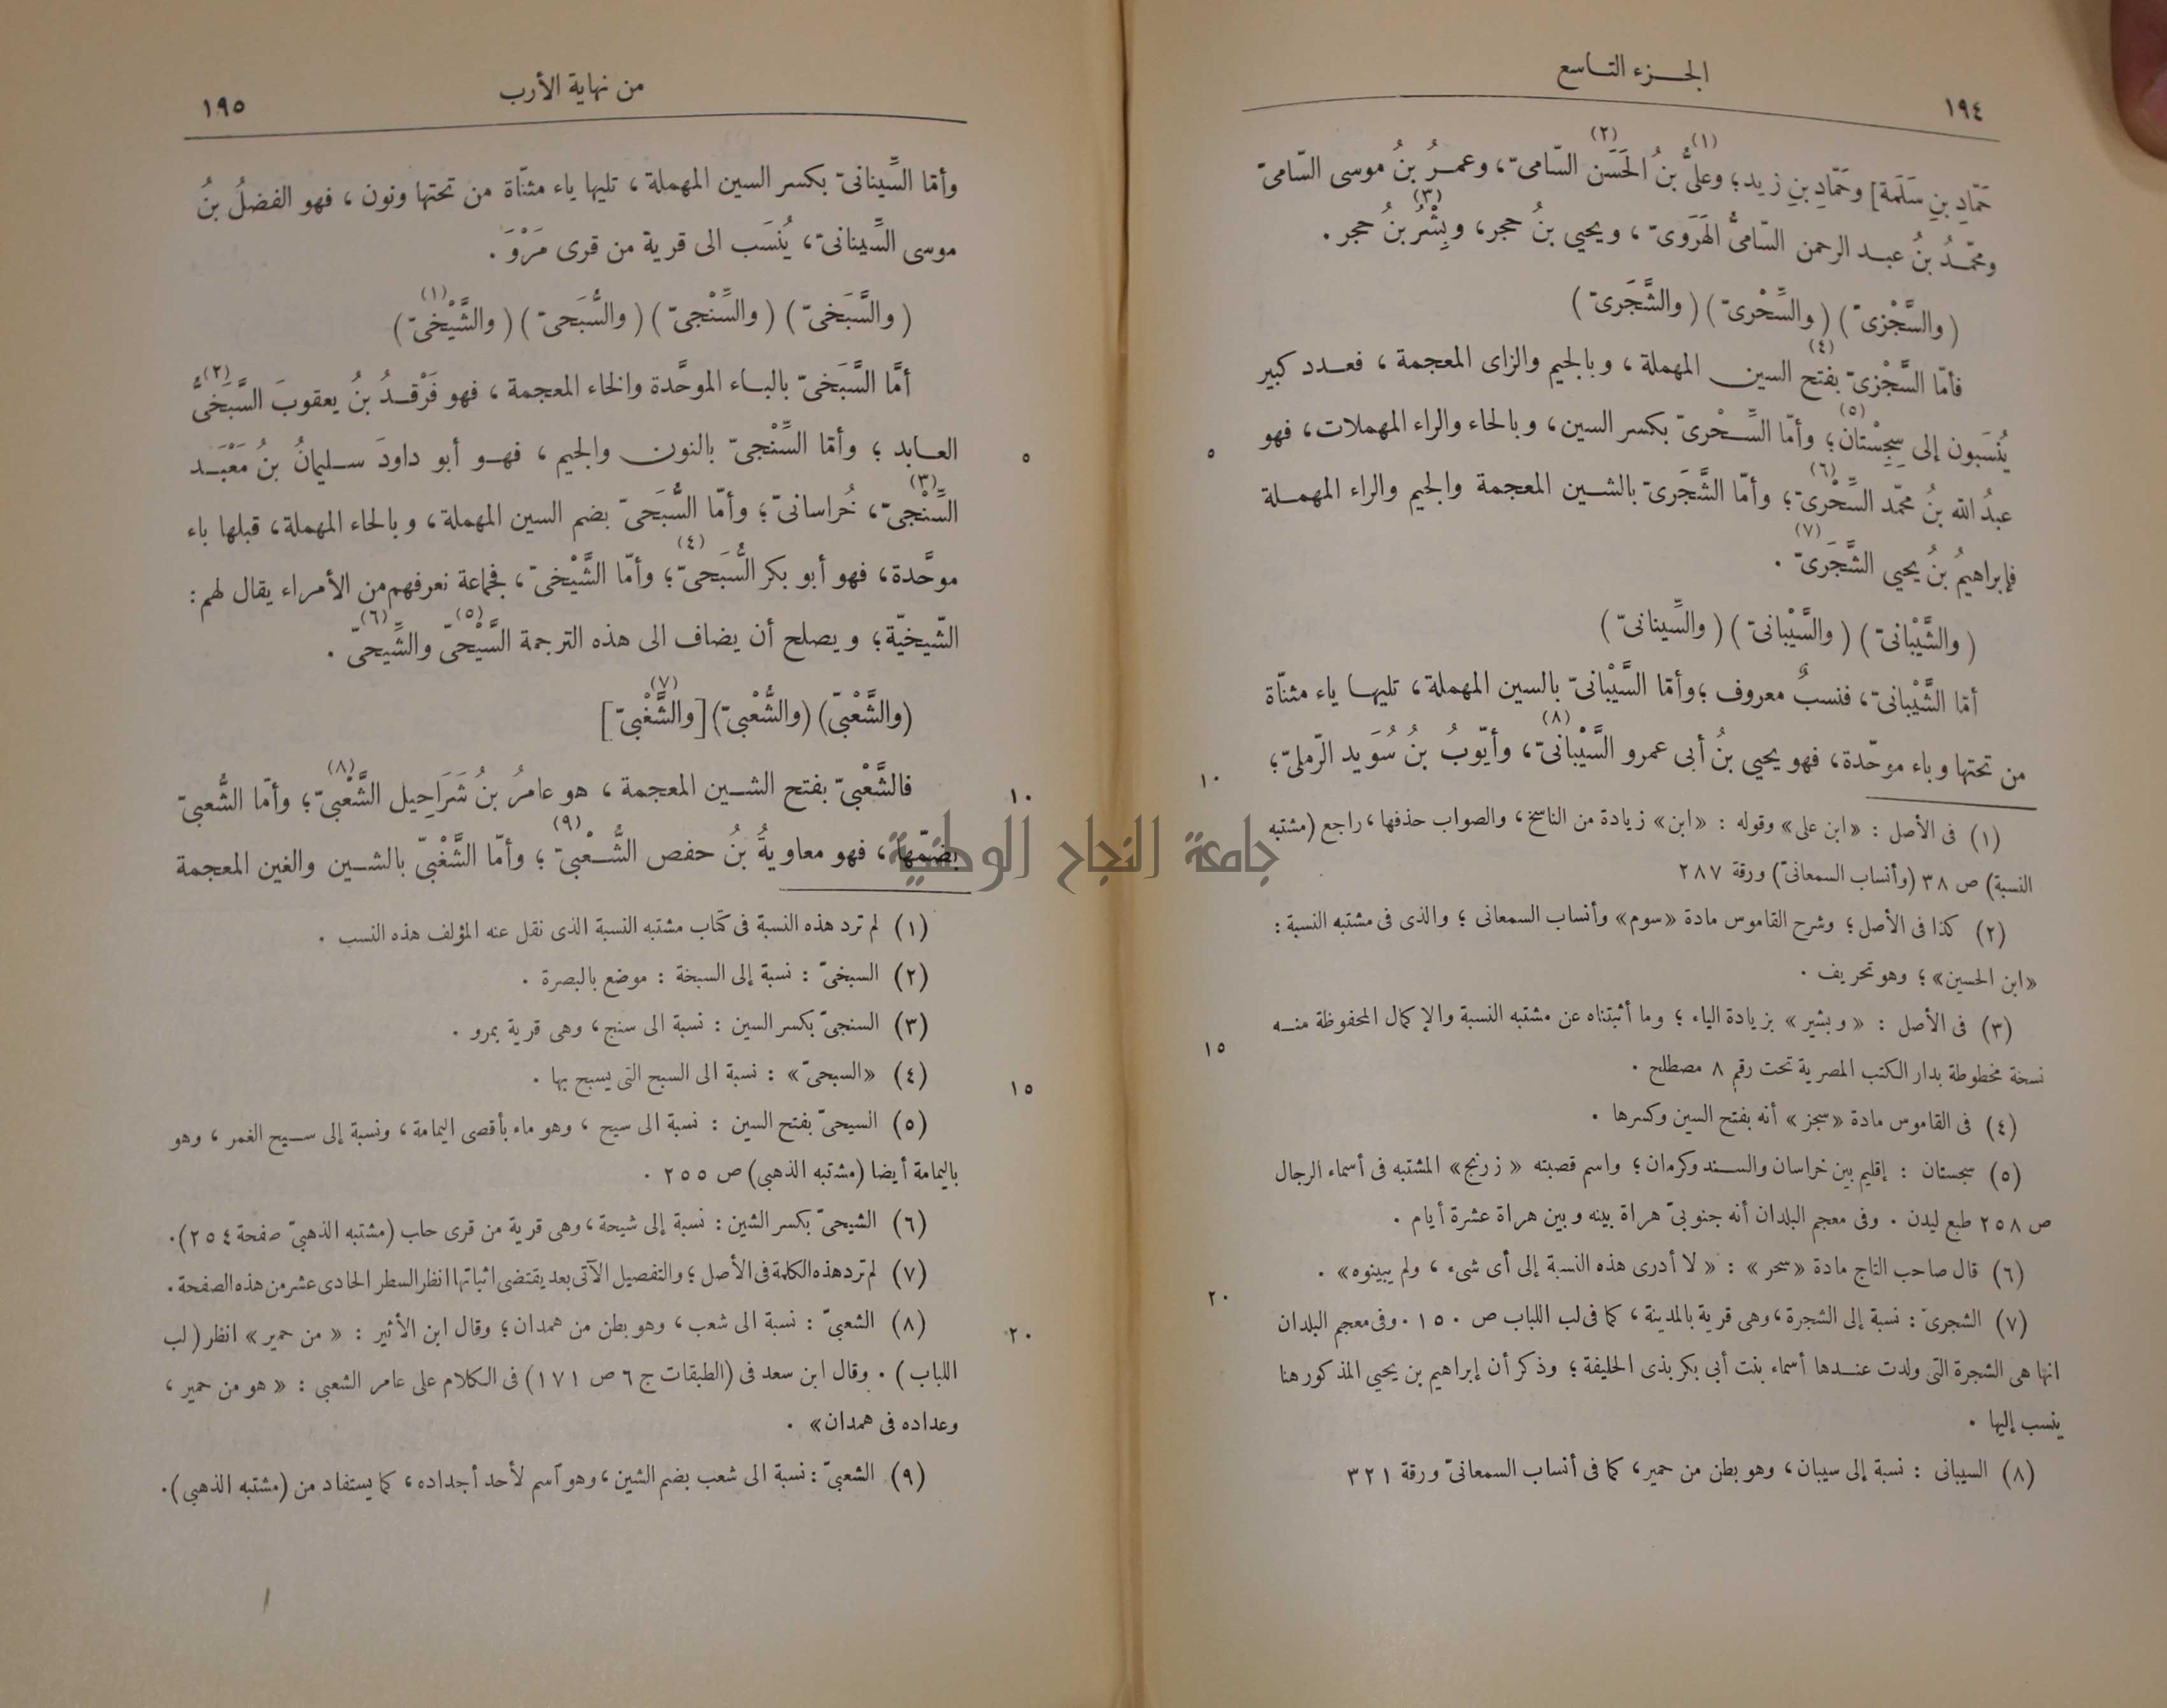 الجزء التاسع
١٩٤
حَمّادِ بنِ سَلَمة] وحَمّادِ بنِ زيد؛ وعلىُّ (١) بنُ الحَسَن (٢) السّامىّ، وعمرُ بنُ موسى السّامىّ
ومحمّدُ بنُ عبد الرحمن السّامىُّ الهَرَوىّ، ويحيى بنُ حجر، وبِشْرُ (٣) بنُ حجر.
(والسَّجْزىّ) (والسِّحْرىّ) (والشَّجَرىّ)
فأمّا السَّجْزىّ بفتح (٤) السين المهملة، وبالجيم والزاى المعجمة، فعدد كبير
يُنْسَبون إلى سِجِسْتان (٥)؛ وأمّا السِّحْرىّ بكسر السين، وبالحاء والراء المهملات، فهو
٥
عبدُ الله بنُ محمّد السِّحْرىّ (٦)؛ وأمّا الشَّجَرىّ بالشين المعجمة والجيم والراء المهملة
فإبراهيمُ بنُ يحيى الشَّجَرىّ (٧).
(والشَّيْبانىّ) (والسَّيْبانىّ) (والسِّينانىّ)
أمّا الشَّيْبانىّ، فنسبٌ معروف؛ وأمّا السَّيْبانىّ بالسين المهملة، تليها ياء مثنّاة
من تحتها وباء موحّدة، فهو يحيى بنُ أبى عمرو السَّيْبانىّ (٨)، وأيّوبُ بنُ سُوَيد الرّملىّ؛
١٠
(١) فى الأصل : «ابن على» وقوله : «ابن» زيادة من الناسخ، والصواب حذفها، راجع (مشتبه
النسبة) ص ٣٨ (وأنساب السمعانىّ) ورقة ٢٨٧
(٢) كذا فى الأصل؛ وشرح القاموس مادة «سوم» وأنساب السمعانى؛ والذى فى مشتبه النسبة :
«ابن الحسين»؛ وهو تحريف.
(٣) فى الأصل : «وبشير» بزيادة الياء؛ وما أثبتناه عن مشتبه النسبة والإكمال المحفوظة منه
١٥
نسخة مخطوطة بدار الكتب المصرية تحت رقم ٨ مصطلح.
(٤) فى القاموس مادة «سجز» أنه بفتح السين وكسرها.
(٥) سجستان : إقليم بين خراسان والسند وكرمان؛ واسم قصبته «زرنج» المشتبه فى أسماء الرجال
ص ٢٥٨ طبع ليدن. وفى معجم البلدان أنه جنوبىّ هراة بينه وبين هراة عشرة أيام.
(٦) قال صاحب التاج مادة «سحر» : «لا أدرى هذه النسبة إلى أى شىء، ولم يبينوه».
٢٠
(٧) الشجرىّ : نسبة إلى الشجرة، وهى قرية بالمدينة، كما فى لب اللباب ص ١٥٠. وفى معجم البلدان
انها هى الشجرة التى ولدت عندها أسماء بنت أبى بكر بذى الحليفة؛ وذكر أن إبراهيم بن يحيى المذكور هنا
ينسب إليها.
(٨) السيبانى : نسبة إلى سيبان، وهو بطن من حمير، كما فى أنساب السمعانىّ ورقة ٣٢١
من نهاية الأرب
١٩٥
وأمّا السِّينانىّ بكسر السين المهملة، تليها ياء مثنّاة من تحتها ونون، فهو الفضلُ بنُ
موسى السِّينانىّ، يُنْسَب الى قرية من قرى مَرْوَ.
(والسَّبَخىّ) (والسِّنْجىّ) (والسُّبَحىّ) (والشَّيْخىّ (١))
أمَّا السَّبَخىّ بالباء الموحَّدة والخاء المعجمة، فهو فَرْقدُ بنُ يعقوبَ السَّبَخىُّ (٢)
العابد؛ وأمّا السِّنْجىّ بالنون والجيم، فهو أبو داودَ سليمانُ بنُ مَعْبَد
٥
السِّنْجىّ (٣)، خُراسانىّ؛ وأمّا السُّبَحىّ بضم السين المهملة، وبالحاء المهملة، قبلها باء
موحَّدة، فهو أبو بكر السُّبَحىّ (٤)؛ وأمّا الشَّيْخىّ، فجماعة نعرفهم من الأمراء يقال لهم :
الشّيخيّة؛ ويصلح أن يضاف الى هذه الترجمة السَّيْحىّ (٥) والشِّيحىّ (٦).
(والشَّعْبىّ) (والشُّعْبىّ) [والشَّغْبىّ (٧)]
فالشَّعْبىّ بفتح الشين المعجمة، هو عامرُ بنُ شَرَاحِيل الشَّعْبىّ (٨)؛ وأمّا الشُّعبىّ
١٠
بضمّها، فهو معاويةُ بنُ حفص الشُّعْبىّ (٩)؛ وأمّا الشَّغْبىّ بالشين والغين المعجمة
(١) لم ترد هذه النسبة فى كتاب مشتبه النسبة الذى نقل عنه المؤلف هذه النسب.
(٢) السبخىّ : نسبة إلى السبخة : موضع بالبصرة.
(٣) السنجىّ بكسر السين : نسبة الى سنج، وهى قرية بمرو.
(٤) «السبحىّ» : نسبة الى السبح التى يسبح بها.
١٥
(٥) السيحىّ بفتح السين : نسبة الى سيح، وهو ماء بأقصى اليمامة، ونسبة إلى سيح الغمر، وهو
باليمامة أيضا (مشتبه الذهبى) ص ٢٥٥.
(٦) الشيحىّ بكسر الشين : نسبة إلى شيحة، وهى قرية من قرى حلب (مشتبه الذهبىّ صفحة ٢٥٤).
(٧) لم ترد هذه الكلمة فى الأصل؛ والتفصيل الآتى بعد يقتضى اثباتها انظر السطر الحادى عشر من هذه الصفحة.
(٨) الشعبىّ : نسبة الى شعب، وهو بطن من همدان؛ وقال ابن الأثير : «من حمير» انظر (لب
٢٠
اللباب). وقال ابن سعد فى (الطبقات ج ٦ ص ١٧١) فى الكلام على عامر الشعبى : «هو من حمير،
وعداده فى همدان».
(٩) الشعبىّ : نسبة الى شعب بضم الشين، وهو آسم لأحد أجداده، كما يستفاد من (مشتبه الذهبى).
جامعة النجاح الوطنية